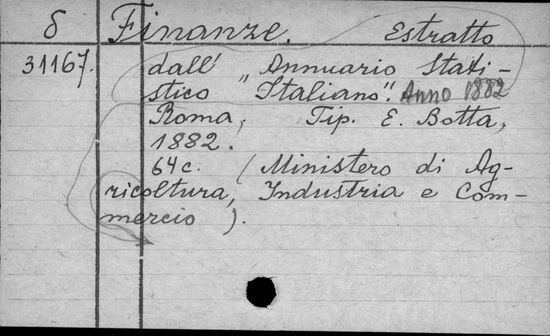 δ Finanze. Estratto
31167. dall' "Annuario Stati-
stico Italiano". Anno 1882
Roma, Tip. E. Botta,
1882.
64 c. (Ministero di Ag-
ricoltura, Industria e Com-
mercio).